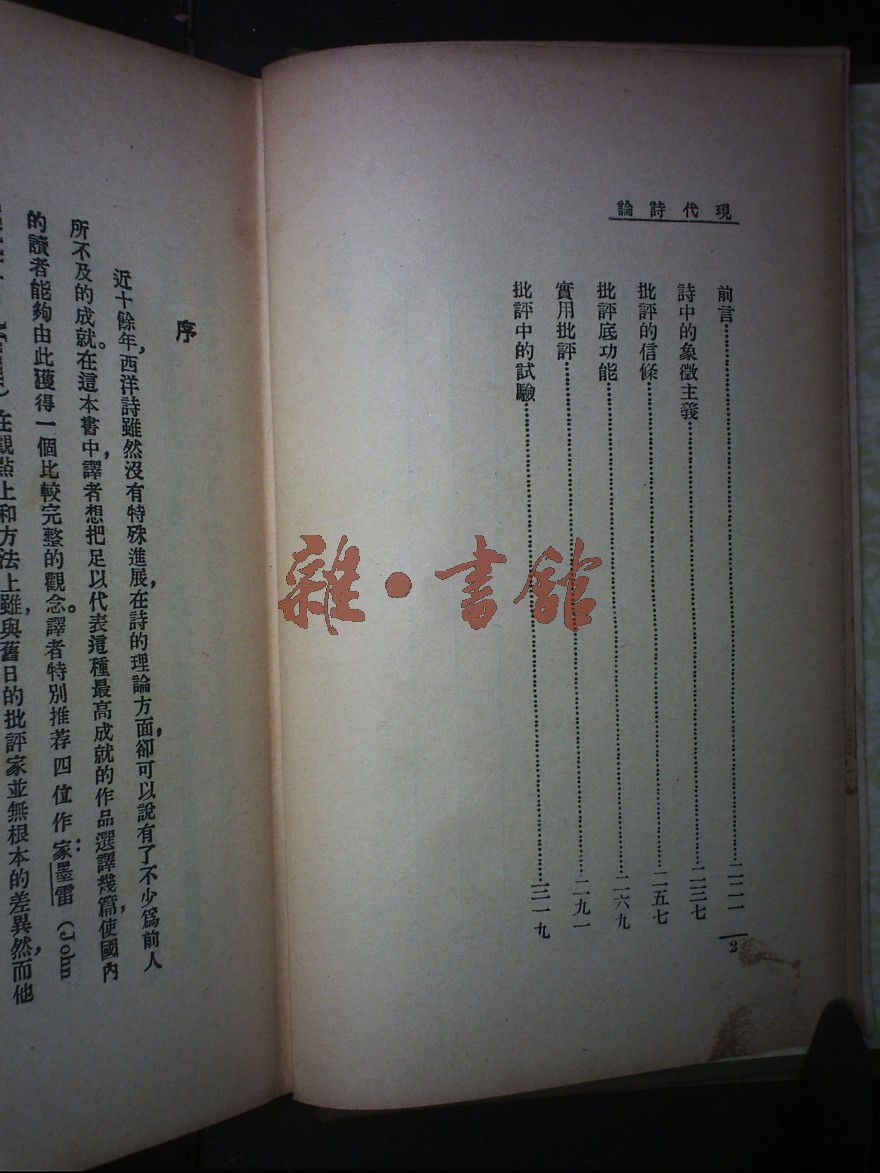 現代詩論
前言……二二一
詩中的象徵主義……二三七
批評的信條……二五七
批評底功能……二六九
實用批評……二九一
批評中的試驗……三一九
2
雜·書館
序
近十餘年，西洋詩雖然沒有特殊進展，在詩的理論方面，卻可以說有了不少爲前人
所不及的成就。在這本書中，譯者想把足以代表這種最高成就的作品選譯幾篇，使國內
的讀者能夠由此獲得一個比較完整的觀念。譯者特別推荐四位作家：墨雷 (John
在觀點上和方法上，雖與舊日的批評家並無根本的差異，然而他